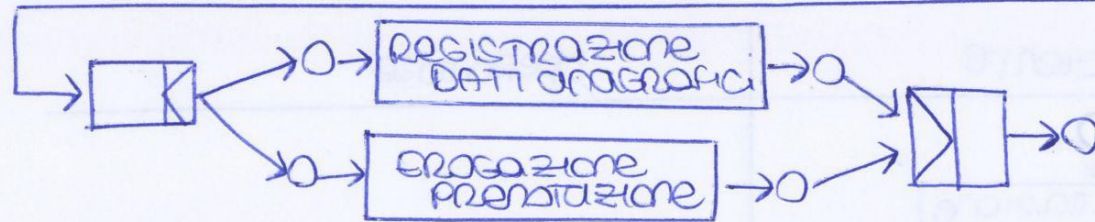 REGISTRAZIONE
DATI ANAGRAFICI
EROGAZIONE
PRENOTAZIONE